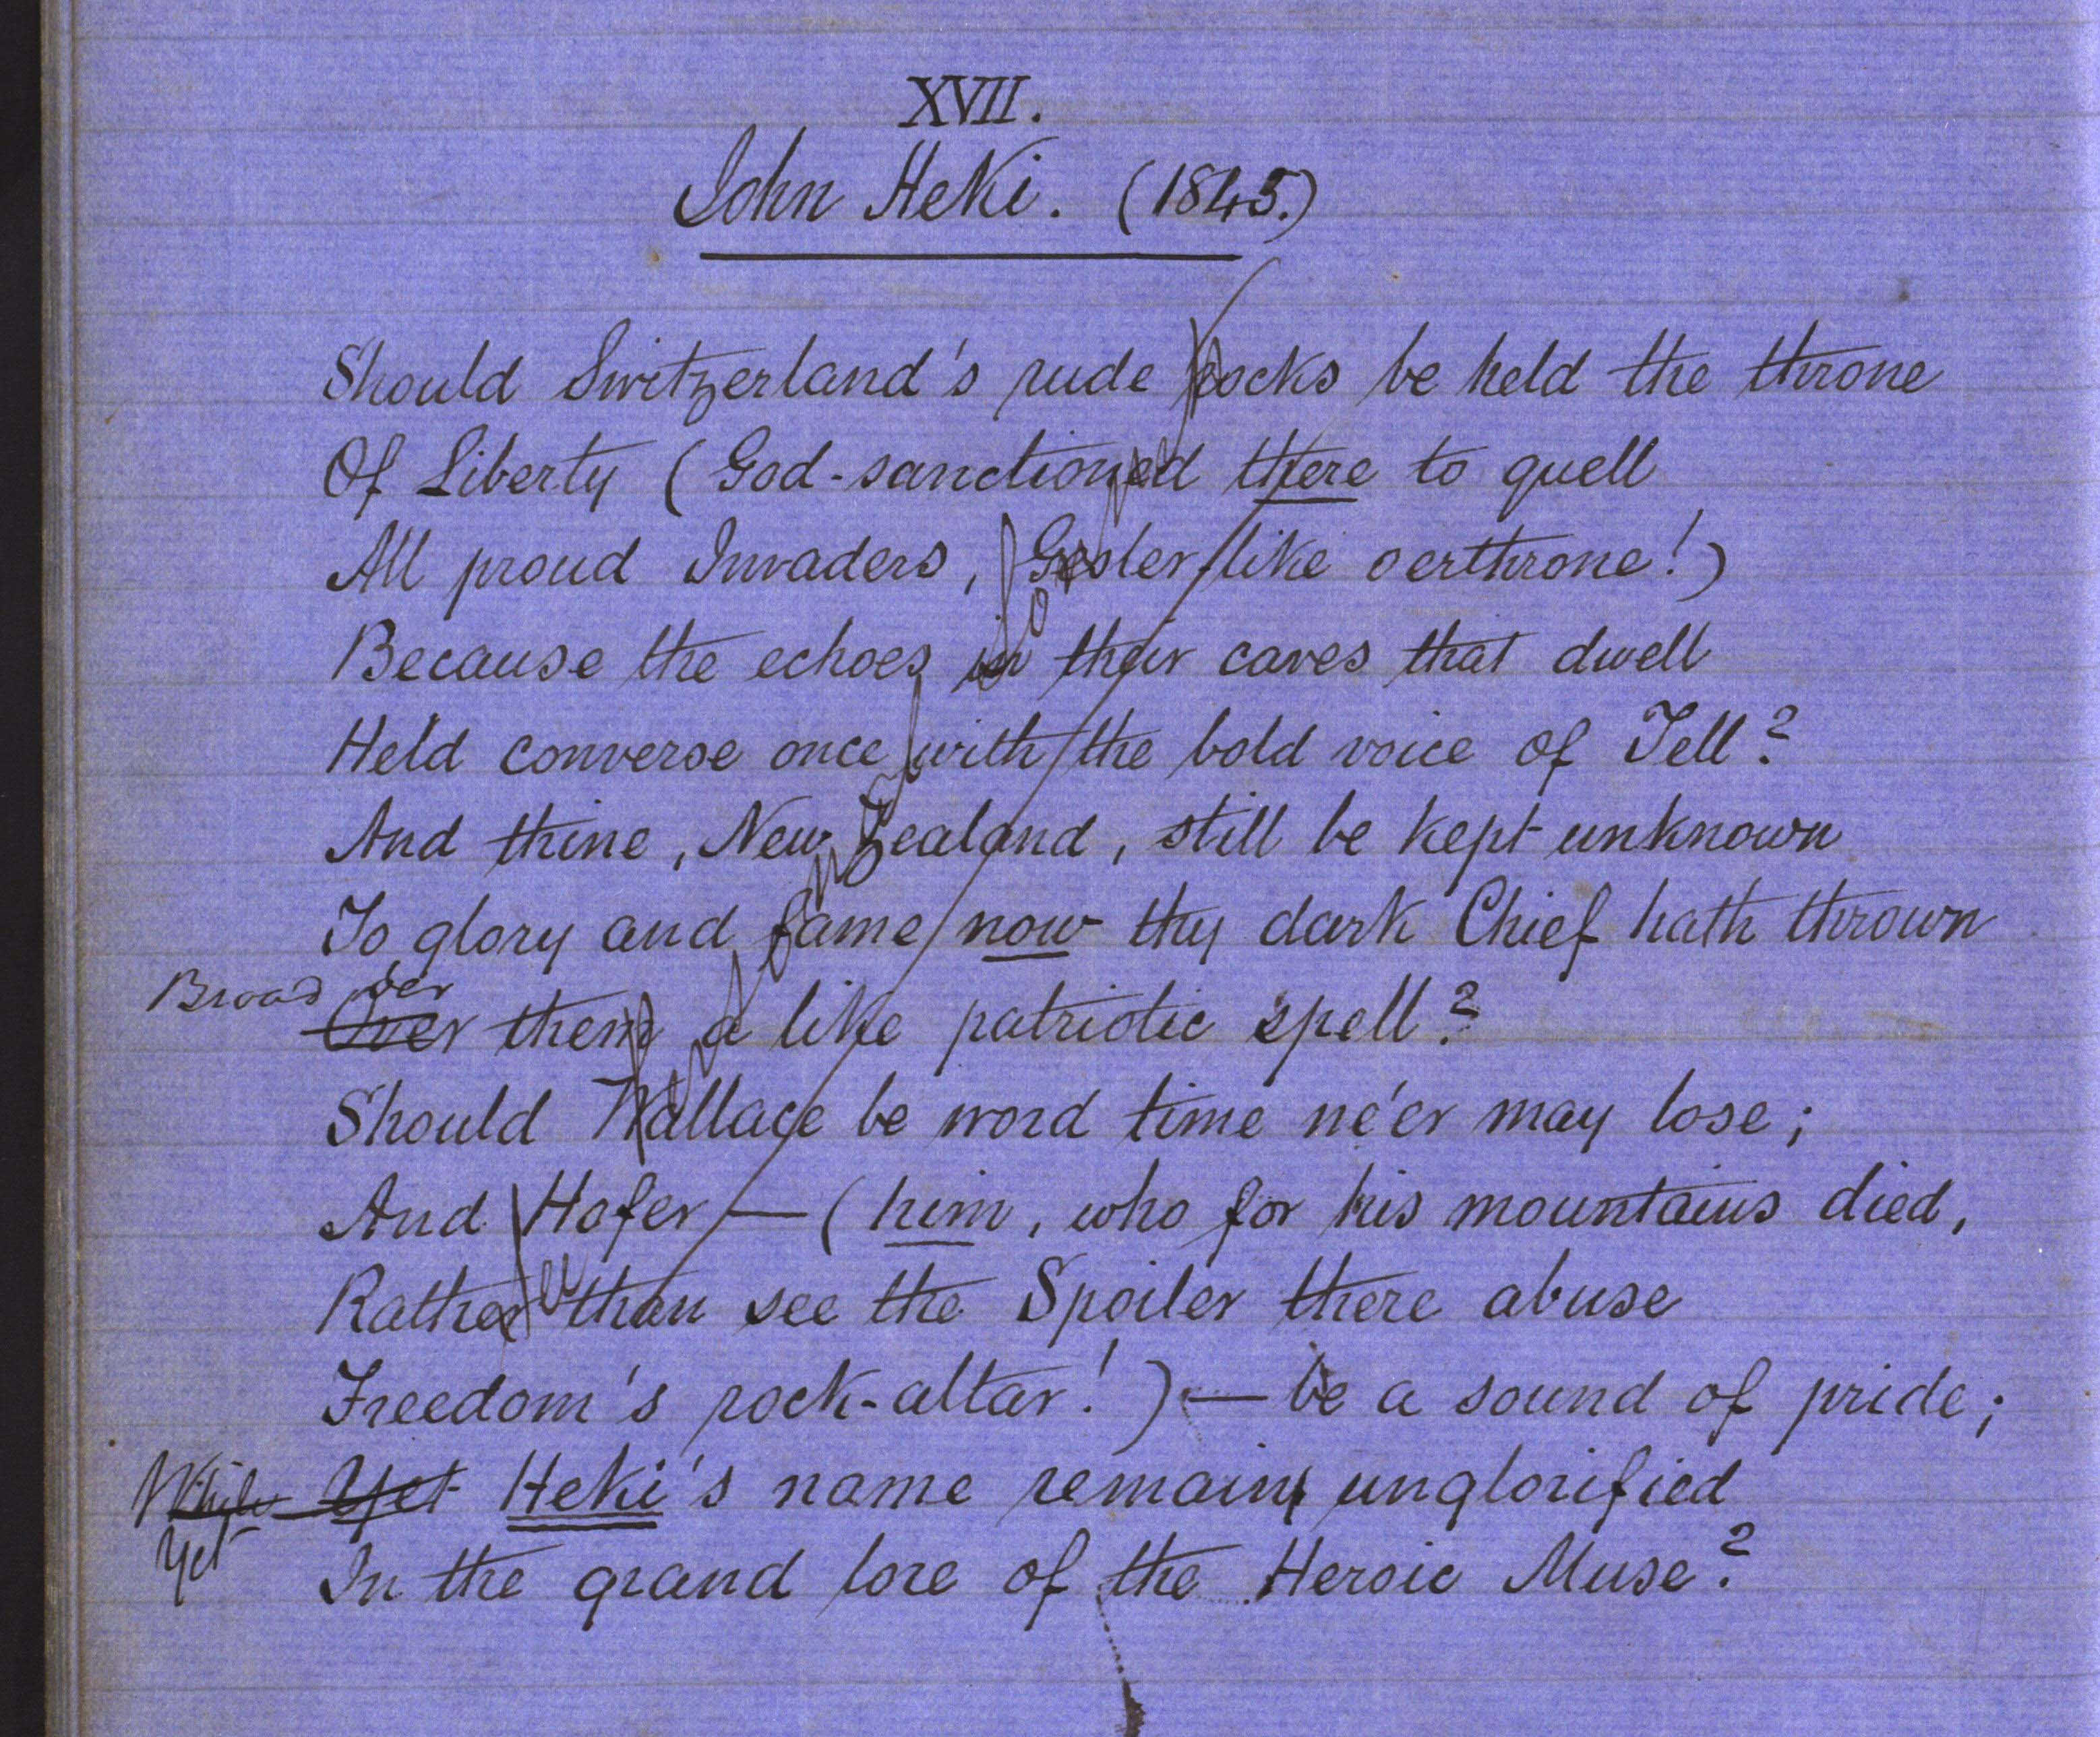 XVII.
John Heki. (1845.)
Should Switzerland's rude rocks be held the throne
Of Liberty (God-sanctioned there to quell
All proud Invaders, Gesler-like oerthrone!)
Because the echoes in their caves that dwell
Held converse once with the bold voice of Tell?
And thine, New Zealand, still be kept unknown
To glory and fame now thy dark Chief hath thrown
Broad o'er
Over them a like patriotic spell?
Should Wallace be word time ne'er may lose;
And Hofer — (him, who for his mountains died,
Rather than see the Spoiler there abuse
Freedom's rock-altar!) — be a sound of pride;
While Yet Heki's name remain unglorified
Yet
In the grand lore of the Heroic Muse?